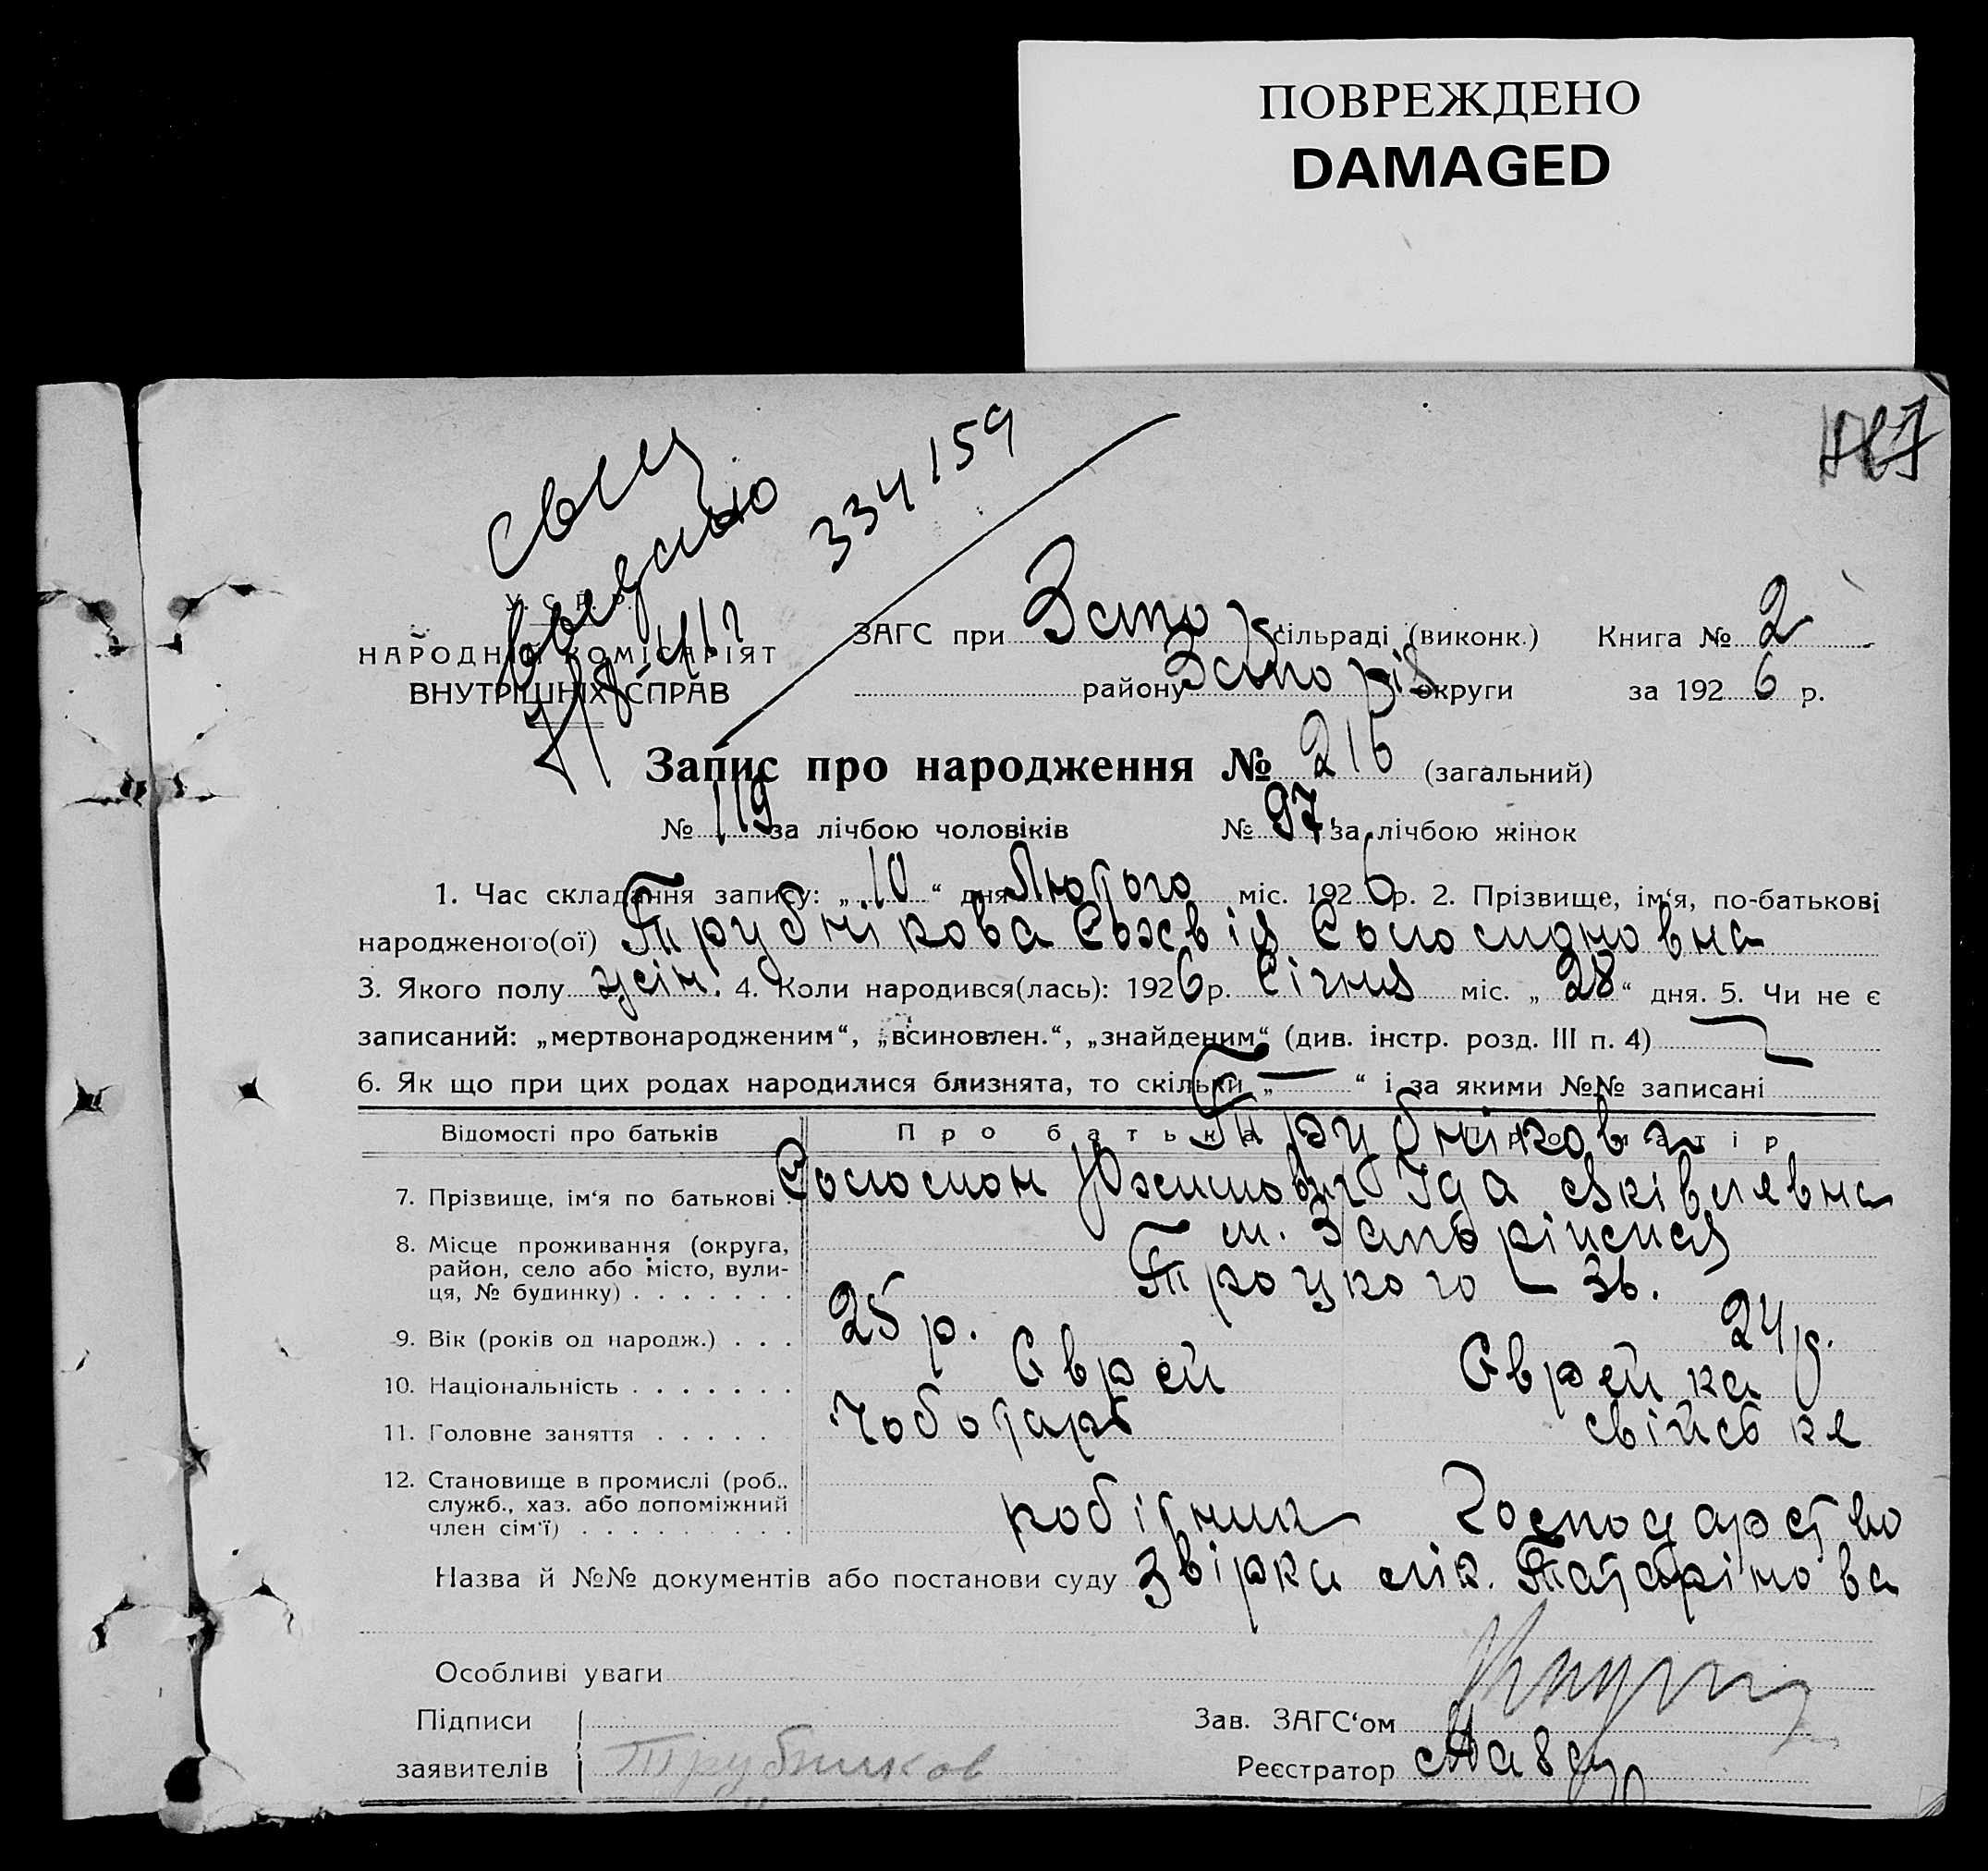 ПОВРЕЖДЕНО
DAMAGED
334159
У. С. Р. Р.
НАРОДНІЙ КОМІСАРІЯТ
ВНУТРІШНІХ СПРАВ
ЗАГС при Запор сільраді (виконк.) Книга № 2
району Запоріз округи за 1926 р.
Запис про народження № 216 (загальний)
№ 119 за лічбою чоловіків № 97 за лічбою жінок
1. Час складання запису: „ 10 “ дня Лютого міс. 1926 р. 2. Прізвище, ім‘я, по-батькові
народженого(ої) Трубнікова Соломоновна
3. Якого полу жін. 4. Коли народився(лась): 1926 р. Січня міс. „ 28 “ дня. 5. Чи не є
записаний: „мертвонародженим“, „всиновлен.“, „знайденим“ (див. інстр. розд. III п. 4)
6. Як що при цих родах народилися близнята, то скільки „ — “ і за якими №№ записані
Відомості про батьків Про батька Про матір
Трубнікова
7. Прізвище, ім‘я по батькові Соломон Іда Яківлевна
8. Місце проживання (округа,
район, село або місто, вули-
ця, № будинку) . . . . . . .
м. Запоріжжя
Троцкого – 36.
9. Вік (років од народж.) . . . 25 р. 24 р.
10. Національність . . . . . . . Єврей Єврейка
11. Головне заняття . . . . . Чоботарь свійське
12. Становище в промислі (роб.,
служб., хаз. або допоміжний
член сім‘ї) . . . . . . . . .
робітник господарство
Назва й №№ документів або постанови суду Звірка лік. Татарінова
Особливі уваги
Підписи
заявителів
Трубников
Зав. ЗАГС‘ом
Реєстратор